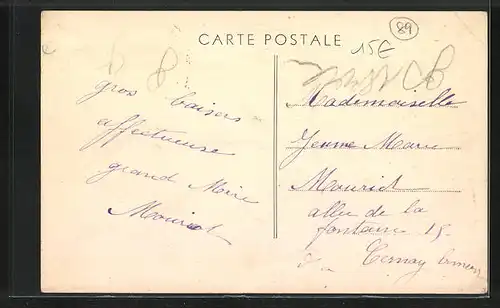 CARTE POSTALE
89
15€
gros baisers
affectueuse
grand Mère
Mouriot
Mademoiselle
Jeanne Marie
Mouriot
allée de la
fontaine 15